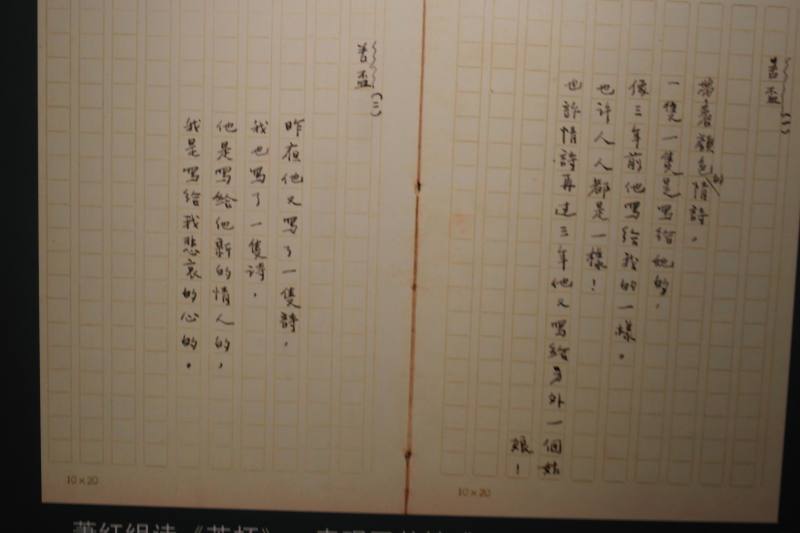 苦盃（一）
帶着顏色的情詩，
一隻一隻是寫給她的，
像三年前他寫給我的一樣。
也许人人都是一樣！
也許情詩再过三年他又寫給另外一個姑
娘！
苦盃（二）
昨夜他又寫了一隻詩，
我也寫了一隻诗，
他是寫給他新的情人的，
我是寫給我悲哀的心的。
10×20
10×20
萧红组诗《苦杯》